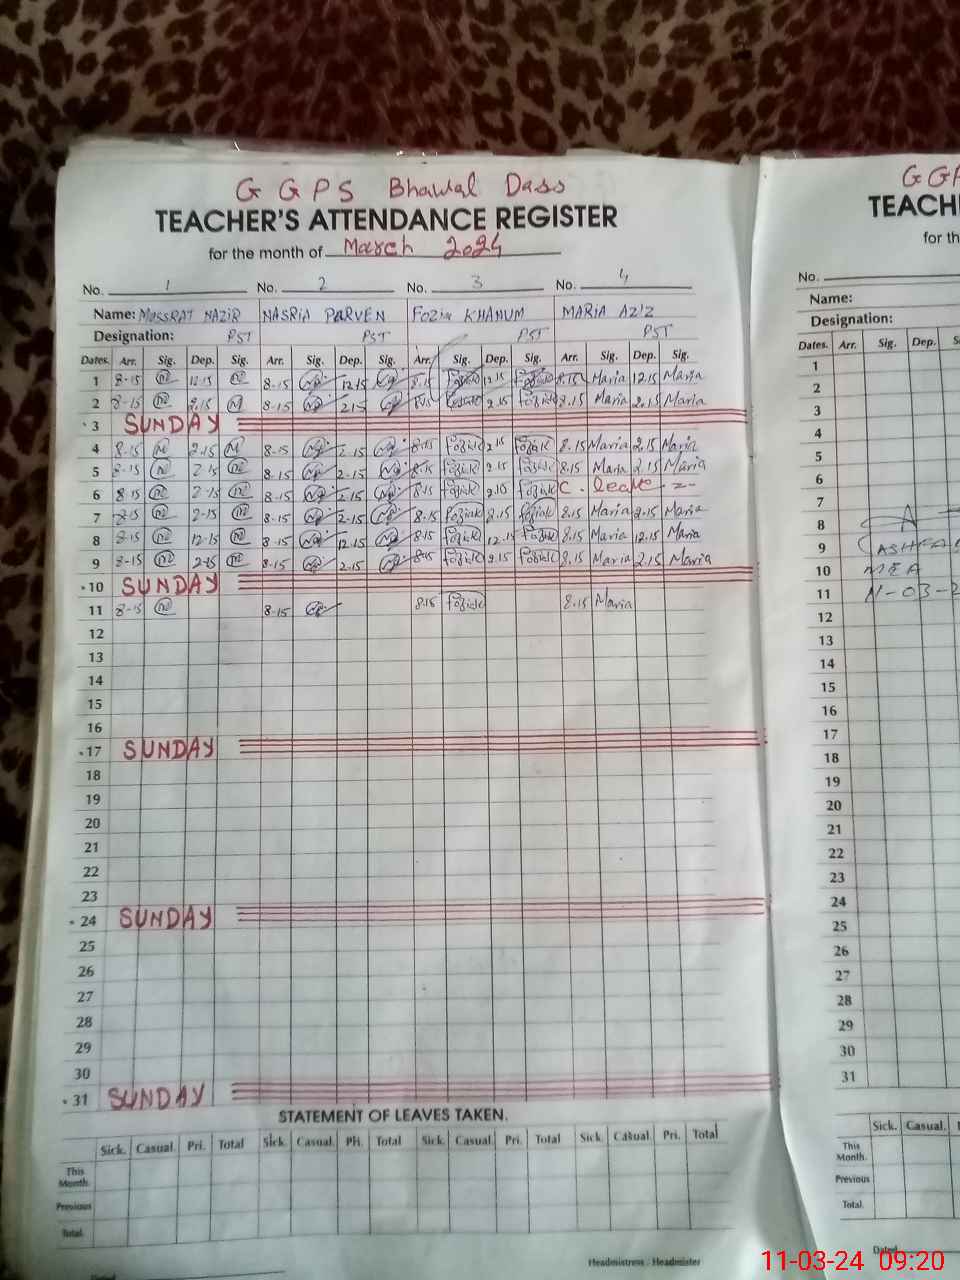 G G P S Bhawal Dass
TEACHER'S ATTENDANCE REGISTER
for the month of March 2024
No. 1 No. 2 No. 3 No. 4
Name: MOSSRAT NAZIR NASRIA PARVEN FOZIA KHANUM MARIA AZIZ
Designation: PST PST PST PST
Dates. Arr. Sig. Dep. Sig. Arr. Sig. Dep. Sig. Arr. Sig. Dep. Sig. Arr. Sig. Dep. Sig.
1 8-15 12-15 8-15 12.15 8.15 12.15 8.15 Maria 12.15 Maria
2 8-15 2.15 8-15 2.15 8.15 2.15 8.15 Maria 2.15 Maria
3 SUNDAY
4 8-15 2-15 8-15 2-15 8.15 2.15 8.15 Maria 2.15 Maria
5 8-15 2-15 8-15 2-15 8.15 2.15 8.15 Maria 2.15 Maria
6 8-15 2-15 8-15 2.15 8.15 2.15 C. leave
7 8-15 2-15 8-15 2-15 8.15 2.15 8.15 Maria 2.15 Maria
8 8-15 12-15 8-15 12.15 8.15 12.15 8.15 Maria 12.15 Maria
9 8-15 2-15 8-15 2.15 8.15 2.15 8.15 Maria 2.15 Maria
10 SUNDAY
11 8-15 8-15 8.15 8.15 Maria
12
13
14
15
16
17 SUNDAY
18
19
20
21
22
23
24 SUNDAY
25
26
27
28
29
30
31 SUNDAY
STATEMENT OF LEAVES TAKEN.
Sick. Casual. Pri. Total Sick. Casual. Pri. Total Sick. Casual. Pri. Total Sick. Casual. Pri. Total
This
Month.
Previous
Total.
Dated
Headmistress / Headmister
G GP
TEACH
for th
No.
Name:
Designation:
Dates. Arr. Sig. Dep. S
1
2
3
4
5
6
7
8
9 ASHFA
10 MEA
11 11-03-2
12
13
14
15
16
17
18
19
20
21
22
23
24
25
26
27
28
29
30
31
Sick. Casual.
This
Month.
Previous
Total.
Dated
11-03-24 09:20